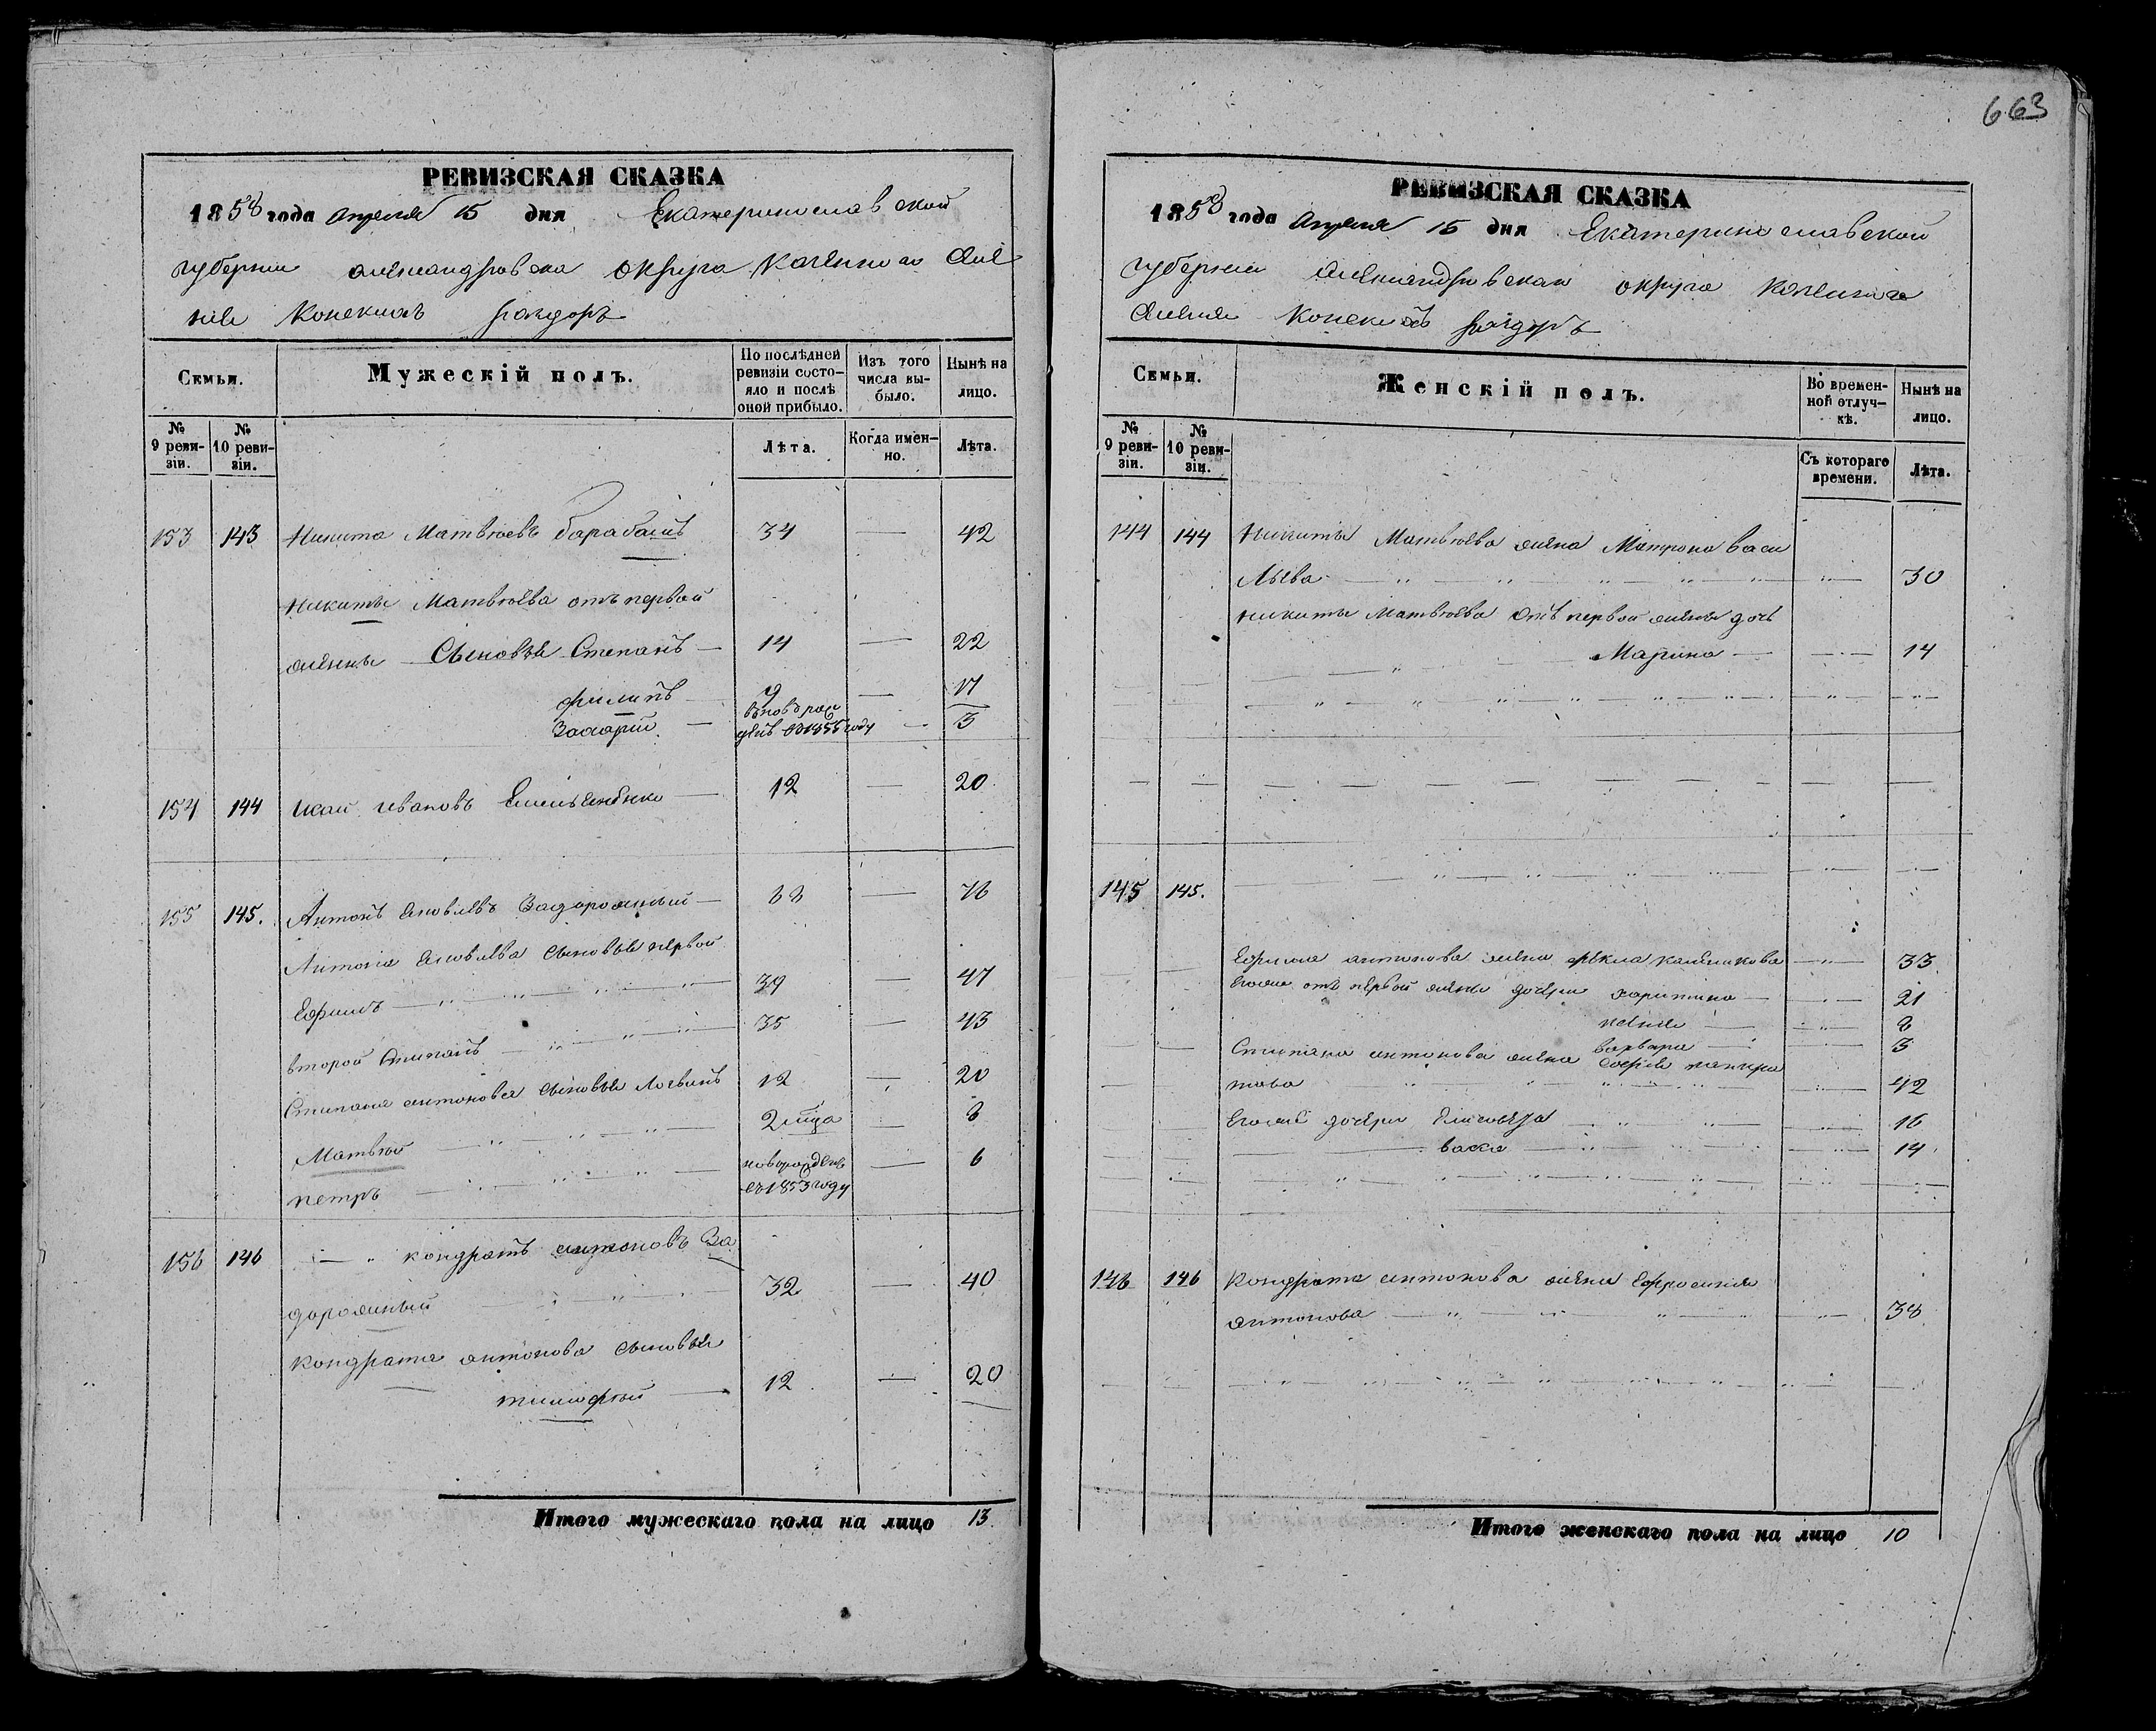 663
РЕВИЗСКАЯ СКАЗКА
1858 года апреля 15 дня Екатеринославской
губернии Александровска округа Казенно
Конскихъ раздоръ
Семьи.
Мужескій полъ.
По послѣдней ревизіи состояло и послѣ оной прибыло.
Изъ того числа выбыло.
Нынѣ на лицо.
№ 9 ревизіи.
№ 10 ревизіи.
Лѣта.
Когда именно.
Лѣта.
153 143 Никита Матвѣевъ Барабашъ 34 — 42
Никиты Матвѣева отъ первой
жены Сыновья Степанъ — 14 — 22
Филипъ 9 — 17
Захарій — вновь рожденъ въ 1855 году — 3
154 144 Иванъ Ивановъ Емельененко — 12 — 20
155 145. Антонъ Яковлевъ Задорожный — 68 — 76
Антона Яковлева Сыновья первой
Ефимъ 39 — 47
второй Стипанъ 35 — 43
Стипана антонова Сыновья Логвинъ 12 — 20
Матвѣй 2 мца — 8
петръ новорожденъ въ 1853 году — 6
156 146 кондратъ антоновъ За
дорожный 32 — 40
Кондрата антонова Сыновья
тимофѣй — 12 — 20
Итого мужескаго пола на лицо 13.
РЕВИЗСКАЯ СКАЗКА
1858 года Апреля 15 дня Екатеринославской
губернии Александровскаго округа Казенного
Имения Конскихъ раздоръ
Семьи.
Женскій полъ.
Во временной отлучкѣ.
Нынѣ на лицо.
№ 9 ревизіи.
№ 10 ревизіи.
Съ котораго времени.
Лѣта.
144 144 Никиты Матвѣева жена Матрона Васи
льева 30
Никиты Матвѣева отъ первой жены дочь
Марина — 14
145 145.
Ефима антонова жена Фекла 33
Его же отъ первой жены дочери Харитина — 21
8
варвара — 3
Стипана антонова жена Софья
това 42
Его же дочери Елисавета 16
васса 14
146 146 Кондрата антонова жена Ефросиния
антонова 38
Итого женскаго пола на лицо 10